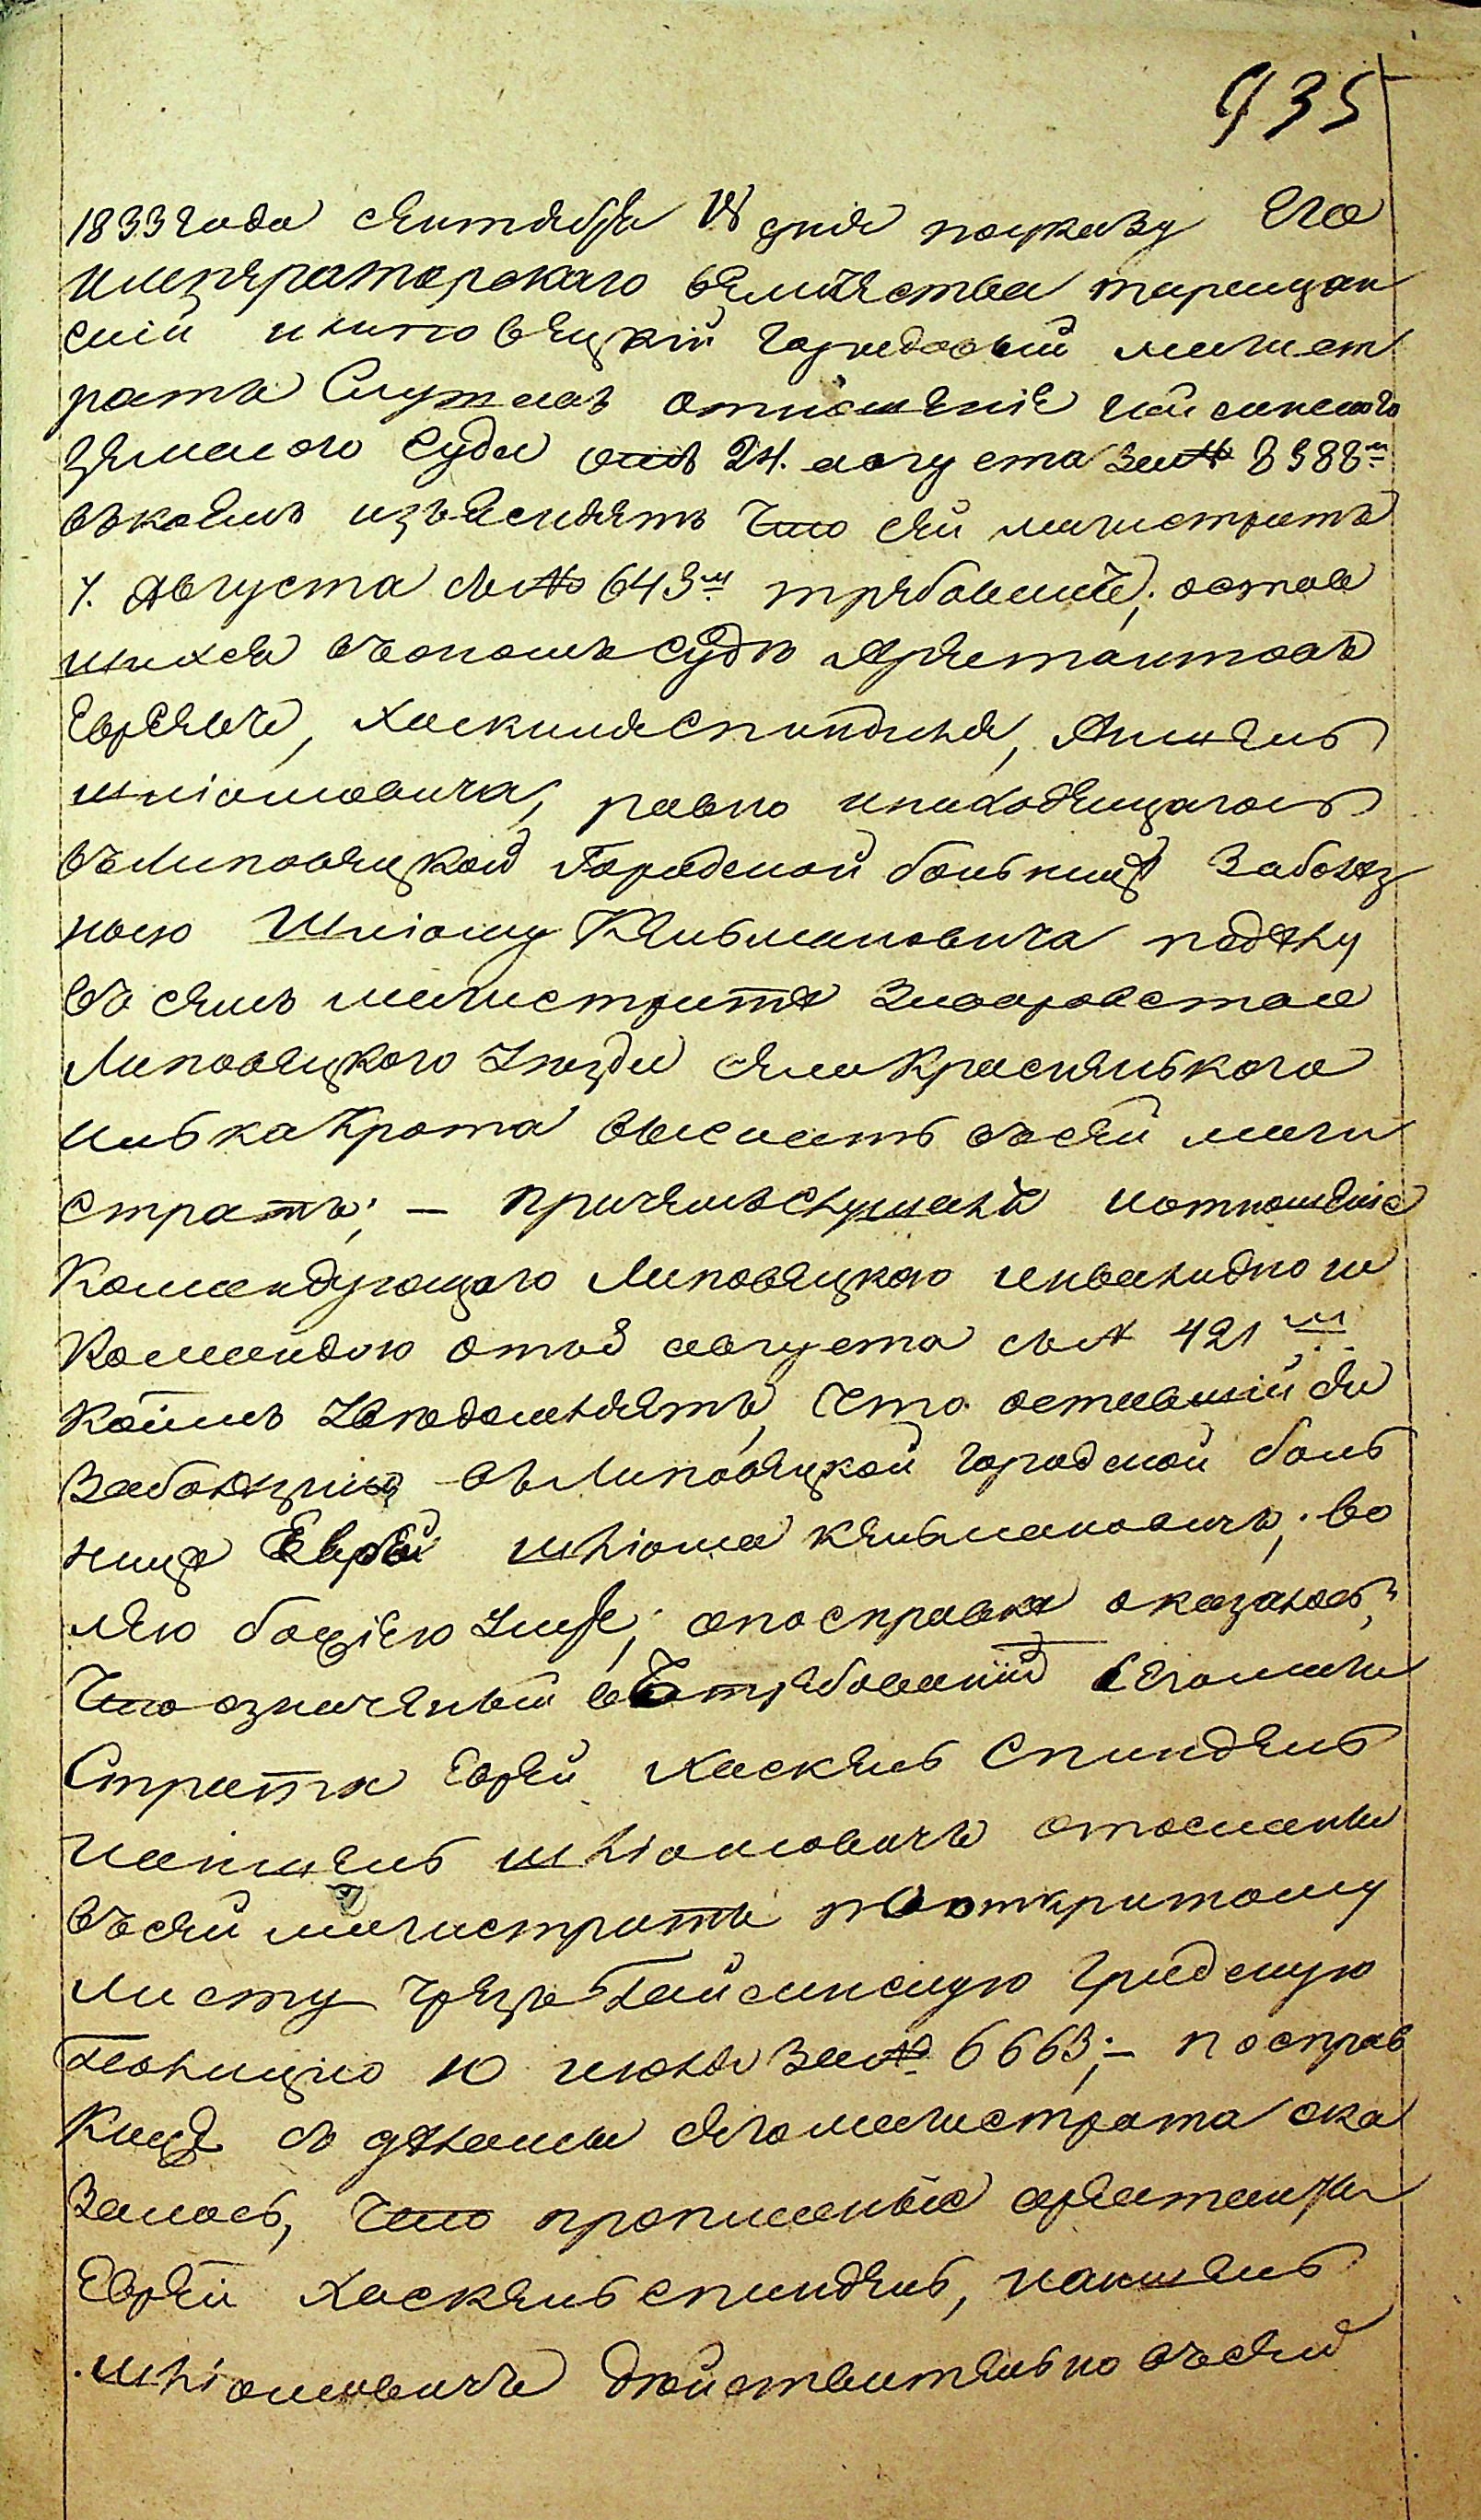 935
1833 года сентября 18 дня поуказу Его
Императорскаго величества таращан
скій илиповецкій городовый магист
ратъ Слушалъ отношенія гайсинскаго
земскаго Суда отъ 24. августа за № 8988м
въкоемъ изъясняетъ Что сей магистратъ
7. августа за № 643м требовалъ, остав
шихся въономъ Судѣ Арестантовъ
Евреевъ, Хаскиля Спинделя, Аншель
шліомовича, равно инаходящагось
въ Липовецкой Городской больницѣ Заболез
нью Шліому Кельмановича подѣлу
въ семъ магистратѣ Зиваровством
Липовецкого уезда села Красненького
илька Крота выслать въсей маги
стратъ; — причемъ слушали иотношеніе
Командующаго Липовецкою инвалидною
Командою отъ 8 августа за № 421м
коимъ уведомляетъ, Что оставшійся
Заболезнію въ Липовецкой городской боль
ницѣ Еврей шліома кельмановичъ, во
лею божіею умре; апосправкѣ оказалось,
Что означеный въ требованіи сегомаги
Страта Еврей Хаскель Спиндель
ианшель шліомовичъ отосланы
въсей магистратъ пооткритому
листу чрезъ Гайсинскую градскую
полицію 10 июля за № 6663; — посправ
кицѣ съ делами сегомагистрата ока
Залось, Что прописаные арестанты
Еврей Хаскель спиндель, ианшель
шліомовичъ действительно въсей